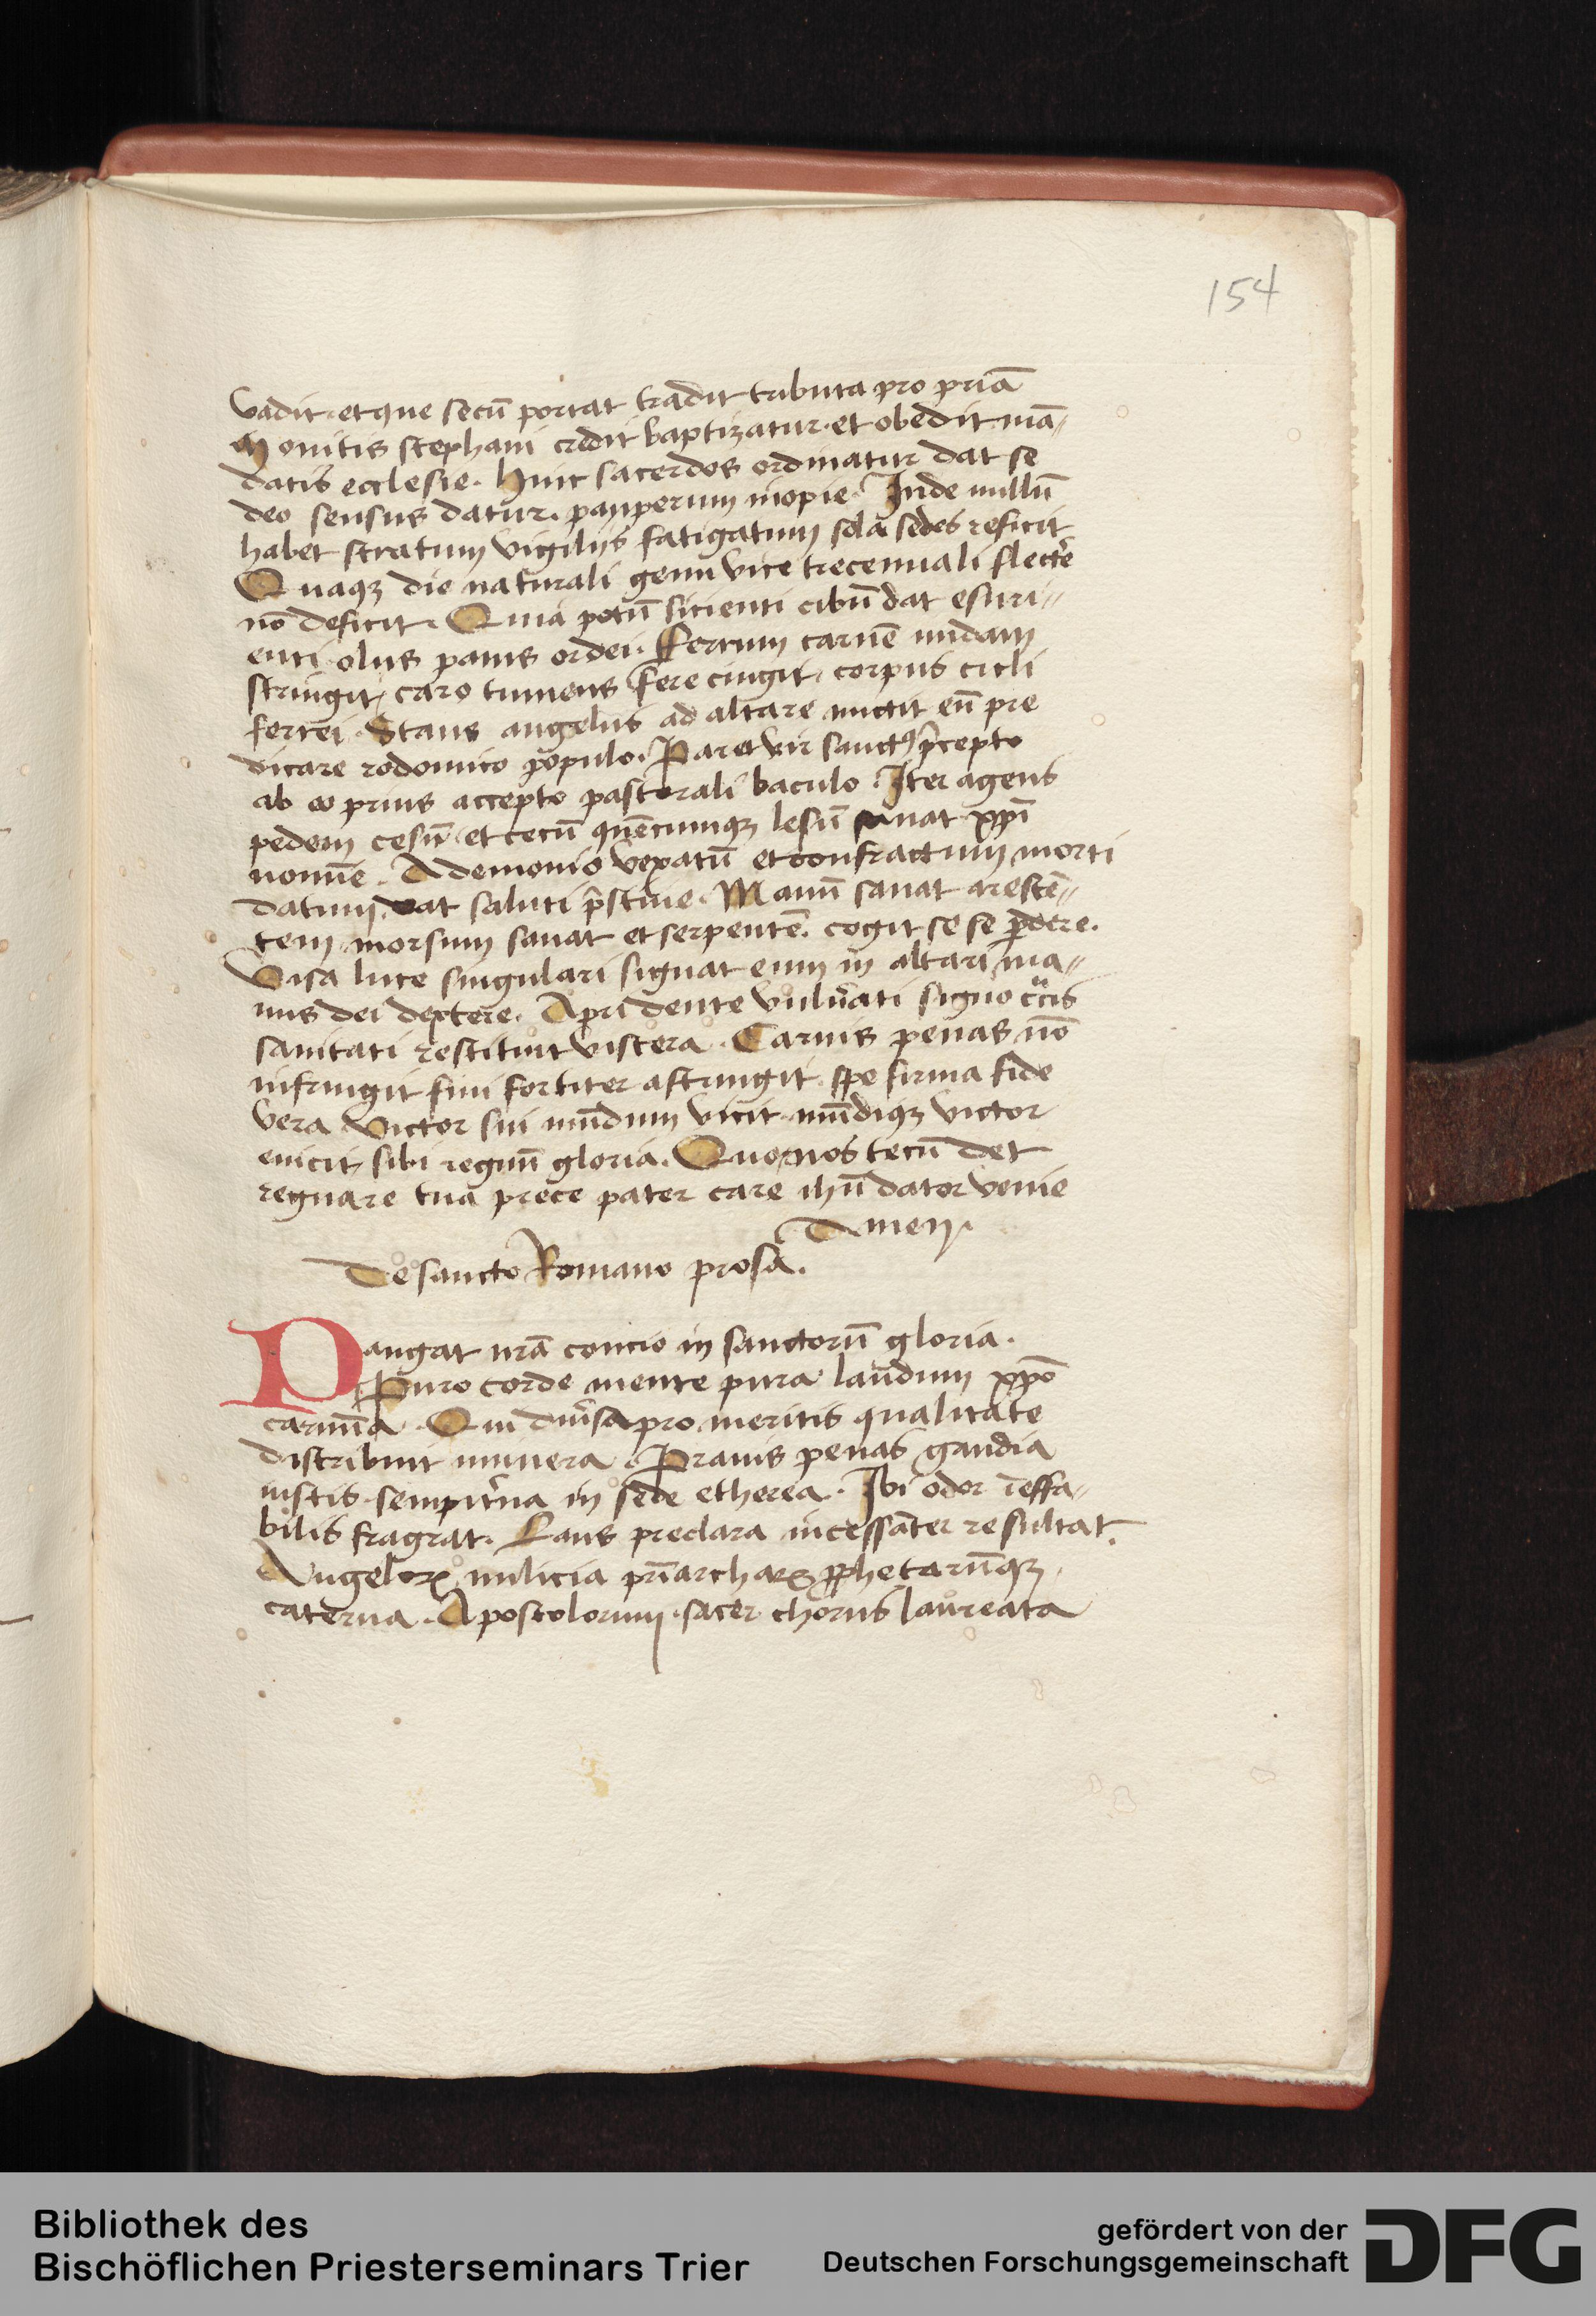 154
vadit· et que secū portat tradit tributa pro priā
Monitis stephani credit baptizatur· et obedit mā„
datis ecclesie. Hinc sacerdos ordinatur dat se
deo sensus datur. pauperum inopie. Inde nullū
habet stratum vigilijs fatigatum sola sedes reficit
Quaqȝ die naturali genu vice trecennali flectere
nō deficit. Quia potū sicienti cibū dat esuri„
enti olus panis ordei. Ferrum carnē nudam
stringit, caro tumens fere cingit, corpus circli
ferrei. Stans angelus ad altare mictit eū pre
dicare rodonico populo. Paret vir sanctꝰ p̄cepto
ab eo prius accepto pastorali baculo. Iter agens
pedem cesū et cecū quēcumqȝ lesū sanat xp̄i
nomīe. A demonio vexatū et confractum morti
datum dat saluti p̄stine. Manū sanat arescē„
tem morsum sanat et serpentē. cogit se se ꝑdere.
Visa luce singulari signat eum in altari ma„
nus dei dextere. Apri dente vulnerati signo crucis
sanitati restituit viscera. Carnis penas nō
infringit fini fortiter astringit. spe firma fide
vera Victor sui mūdum vicit mūdiqȝ victor
enicit sibi regnū gloria. Quo nos tecū det
regnare tua prece pater care ihū dator venie
Amen.
De sancto Romano prosa.
Pangat nrā concio in sanctorū gloria.
Puro corde mente pura laudum xpō
carmīa. Qui diuersa pro meritis qualitate
distribuit munera. Prauis penas gaudia
iustis sempiterna in sede etherea. Ibi odor īeffa„
bilis fragrat. Laus preclara incessāter resultat.
Angeloꝝ milicia priārcharū ꝓphetarūqȝ
caterua. Apostolorum sacer chorus laureata
Bibliothek des
Bischöflichen Priesterseminars Trier
gefördert von der
Deutschen Forschungsgemeinschaft
DFG